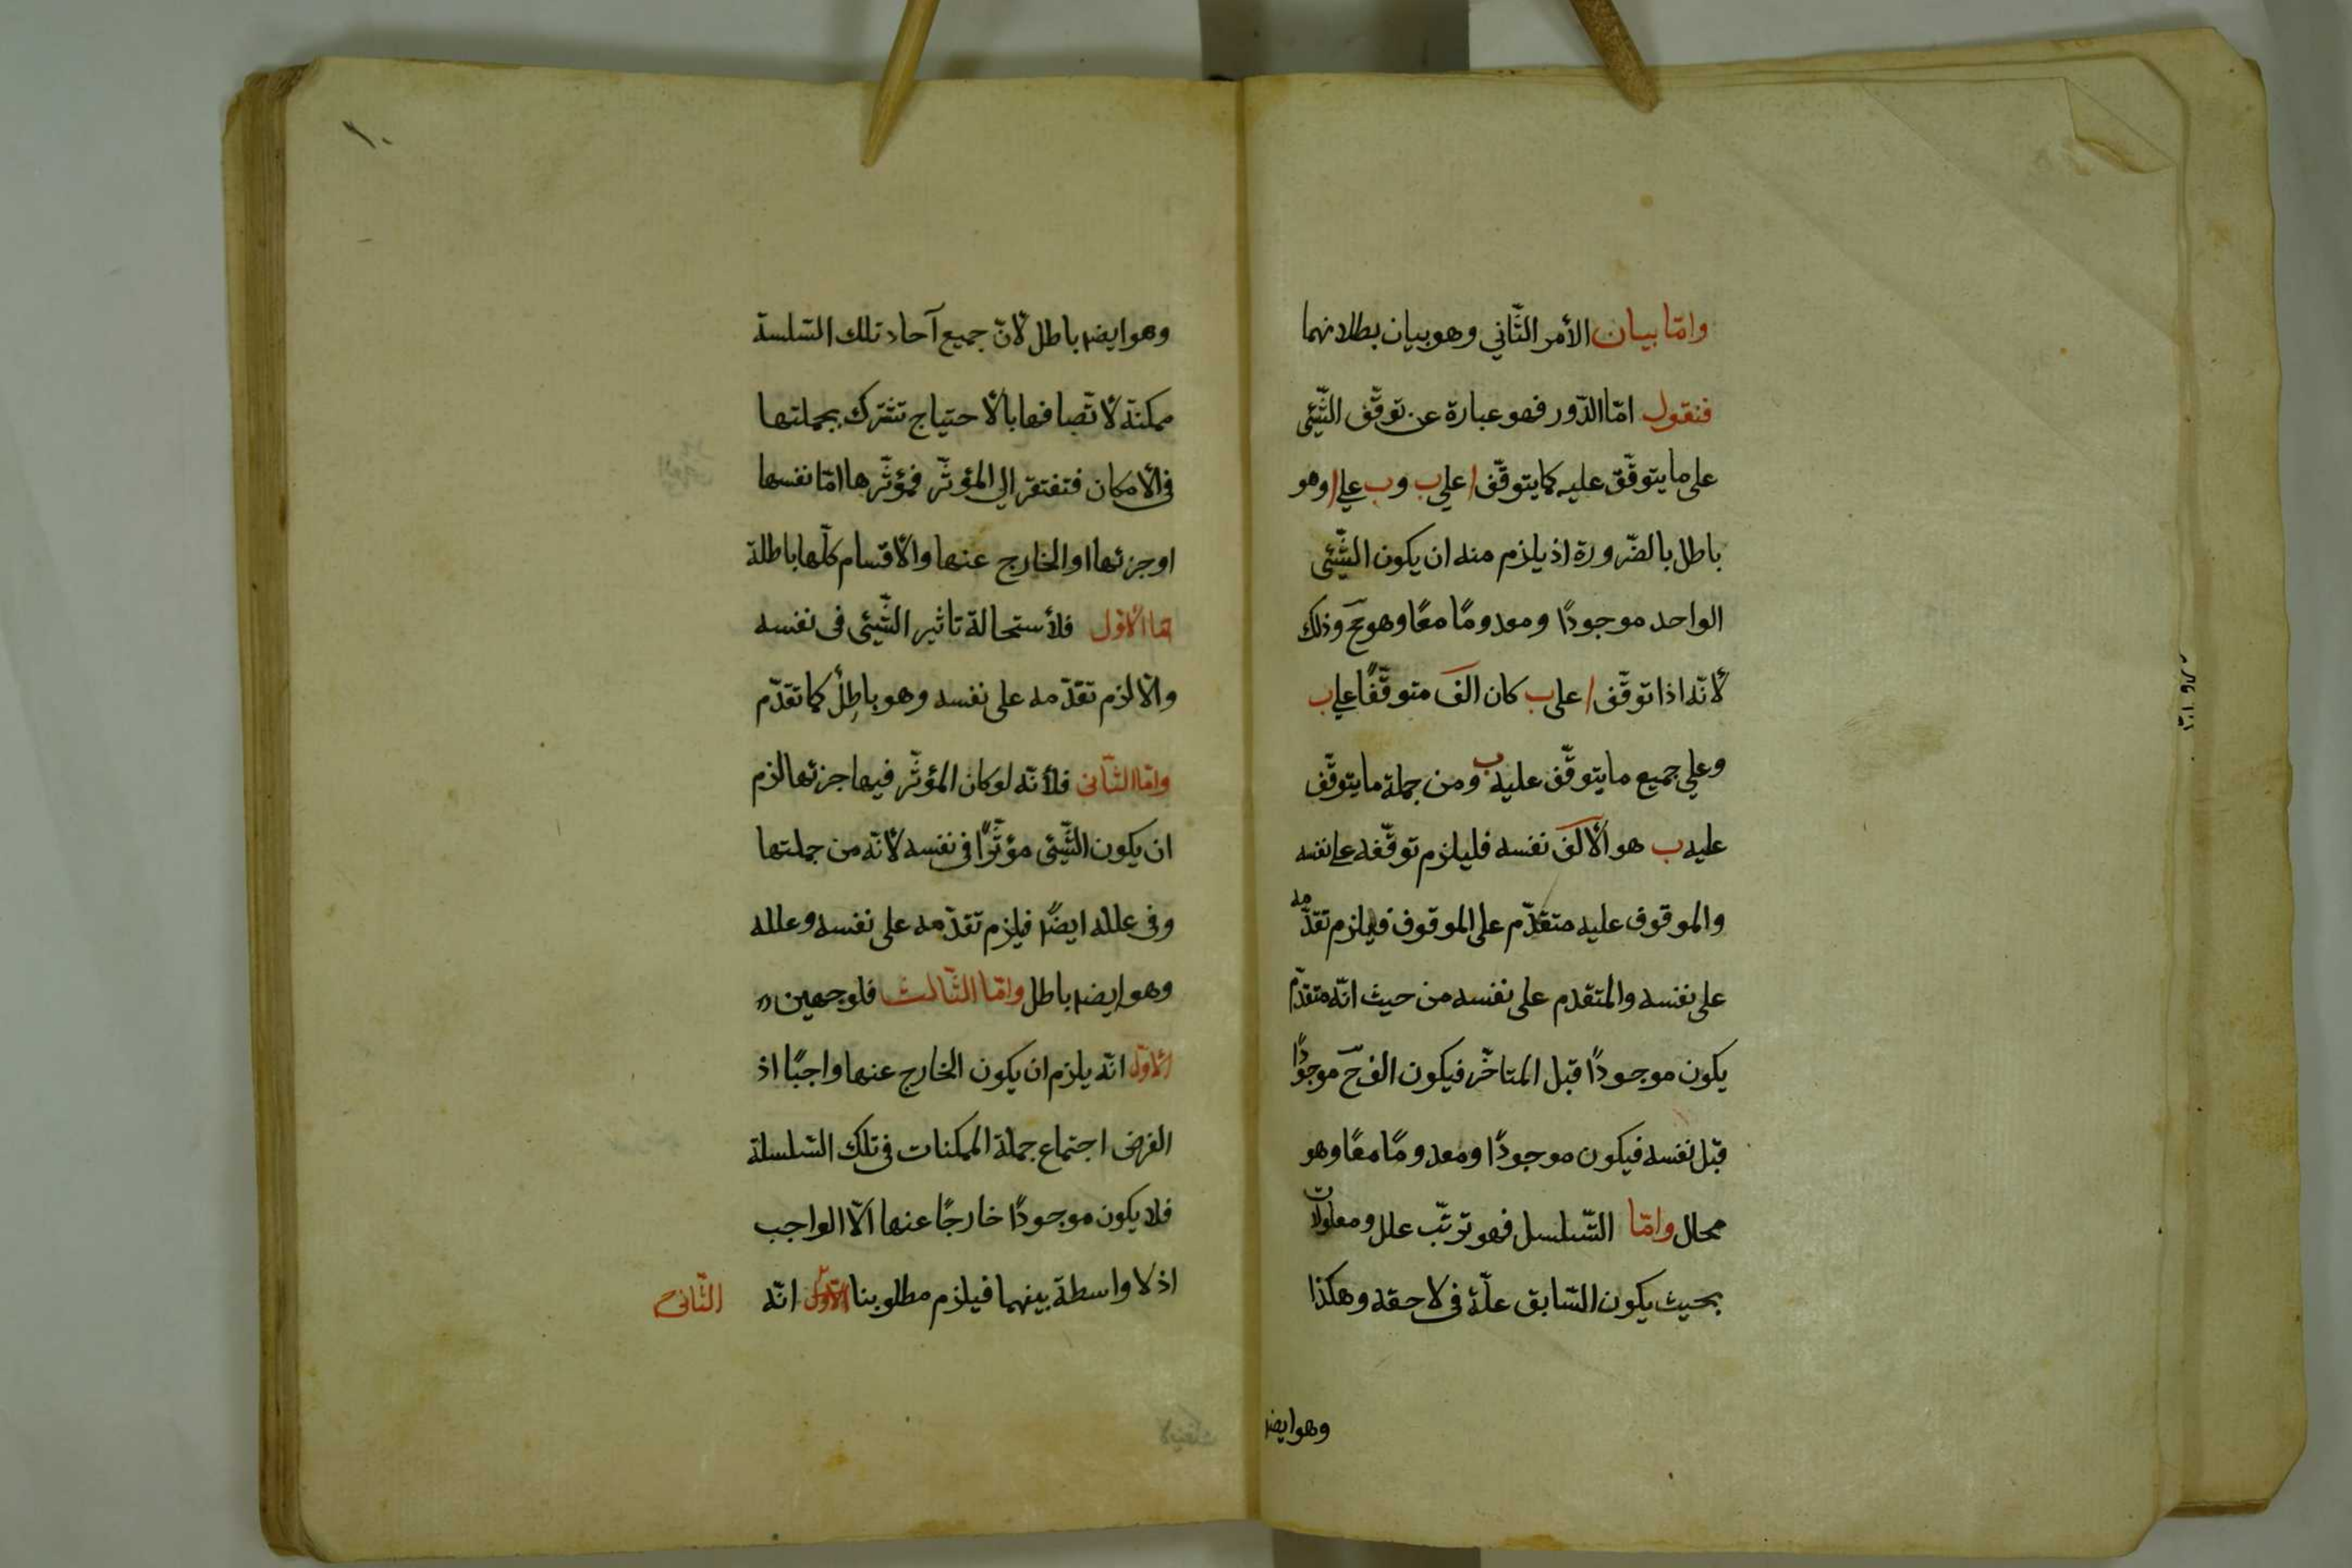 وامّا بيان الأمر الثّاني وهو بيان بطلانهما
فنقول امّا الدّور فهو عبارة عن توقّف الشّيئ
على ما يتوقّف عليه كما يتوقّف ا علي ب وب علي ا وهو
باطل بالضّرورة اذ يلزم منه ان يكون الشّيئى
الواحد موجودًا ومعدومًا معًا وهو مح وذلك
لانّه اذا توقّف ا على ب كان الف متوقّفًا علي ب
وعلي جميع ما يتوقّف عليه ب ومن جملة ما يتوقّف
عليه ب هو الالف نفسه فليلزم توقّفه علي نفسه
والموقوف عليه متقدّم على الموقوف فيلزم تقدّمه
على نفسه والمتقدم على نفسه من حيث انّه متقدّم
يكون موجودًا قبل المتاخّر فيكون الف ح موجودًا
قبل نفسه فيكون موجودًا ومعدومًا معًا وهو
محال وامّا التّسلسل فهو ترتّب علل ومعلولات
بحيث يكون السّابق علّة فى لاحقه وهكذا
وهو ايضا
١٠
وهو ايضا باطل لانّ جميع آحاد تلك السّلسة
ممكنة لاتّصافها بالأحتياج تشترك بجملتها
فى الأمكان فتفتقر الي المؤثّر فمؤثّرها امّا نفسها
او جزئها او الخارج عنها والأقسام كلّها باطلة
امّا الأوّل فلأستحالة تاثير الشّيئى فى نفسه
والّا لزم تقدّمه على نفسه وهو باطِلٌ كما تقدّم
وامّا الثّانى فلأنّه لو كان المؤثّر فيها جزئها لزم
ان يكون الشّيئى مؤثّرًا فى نفسه لأنّه من جملتها
وفى علله ايضًا فيلزم تقدّمه على نفسه وعلله
وهو ايضا باطل وامّا الثّالث فلوجهين
الأوّل انّه يلزم ان يكون الخارج عنها واجبًا اذ
الفرض اجتماع جملة الممكنات فى تلك السّلسلة
فلا يكون موجودًا خارجًا عنها الّا الواجب
اذ لا واسطة بينهما فيلزم مطلوبنا الأوّل انّه
الثّانى